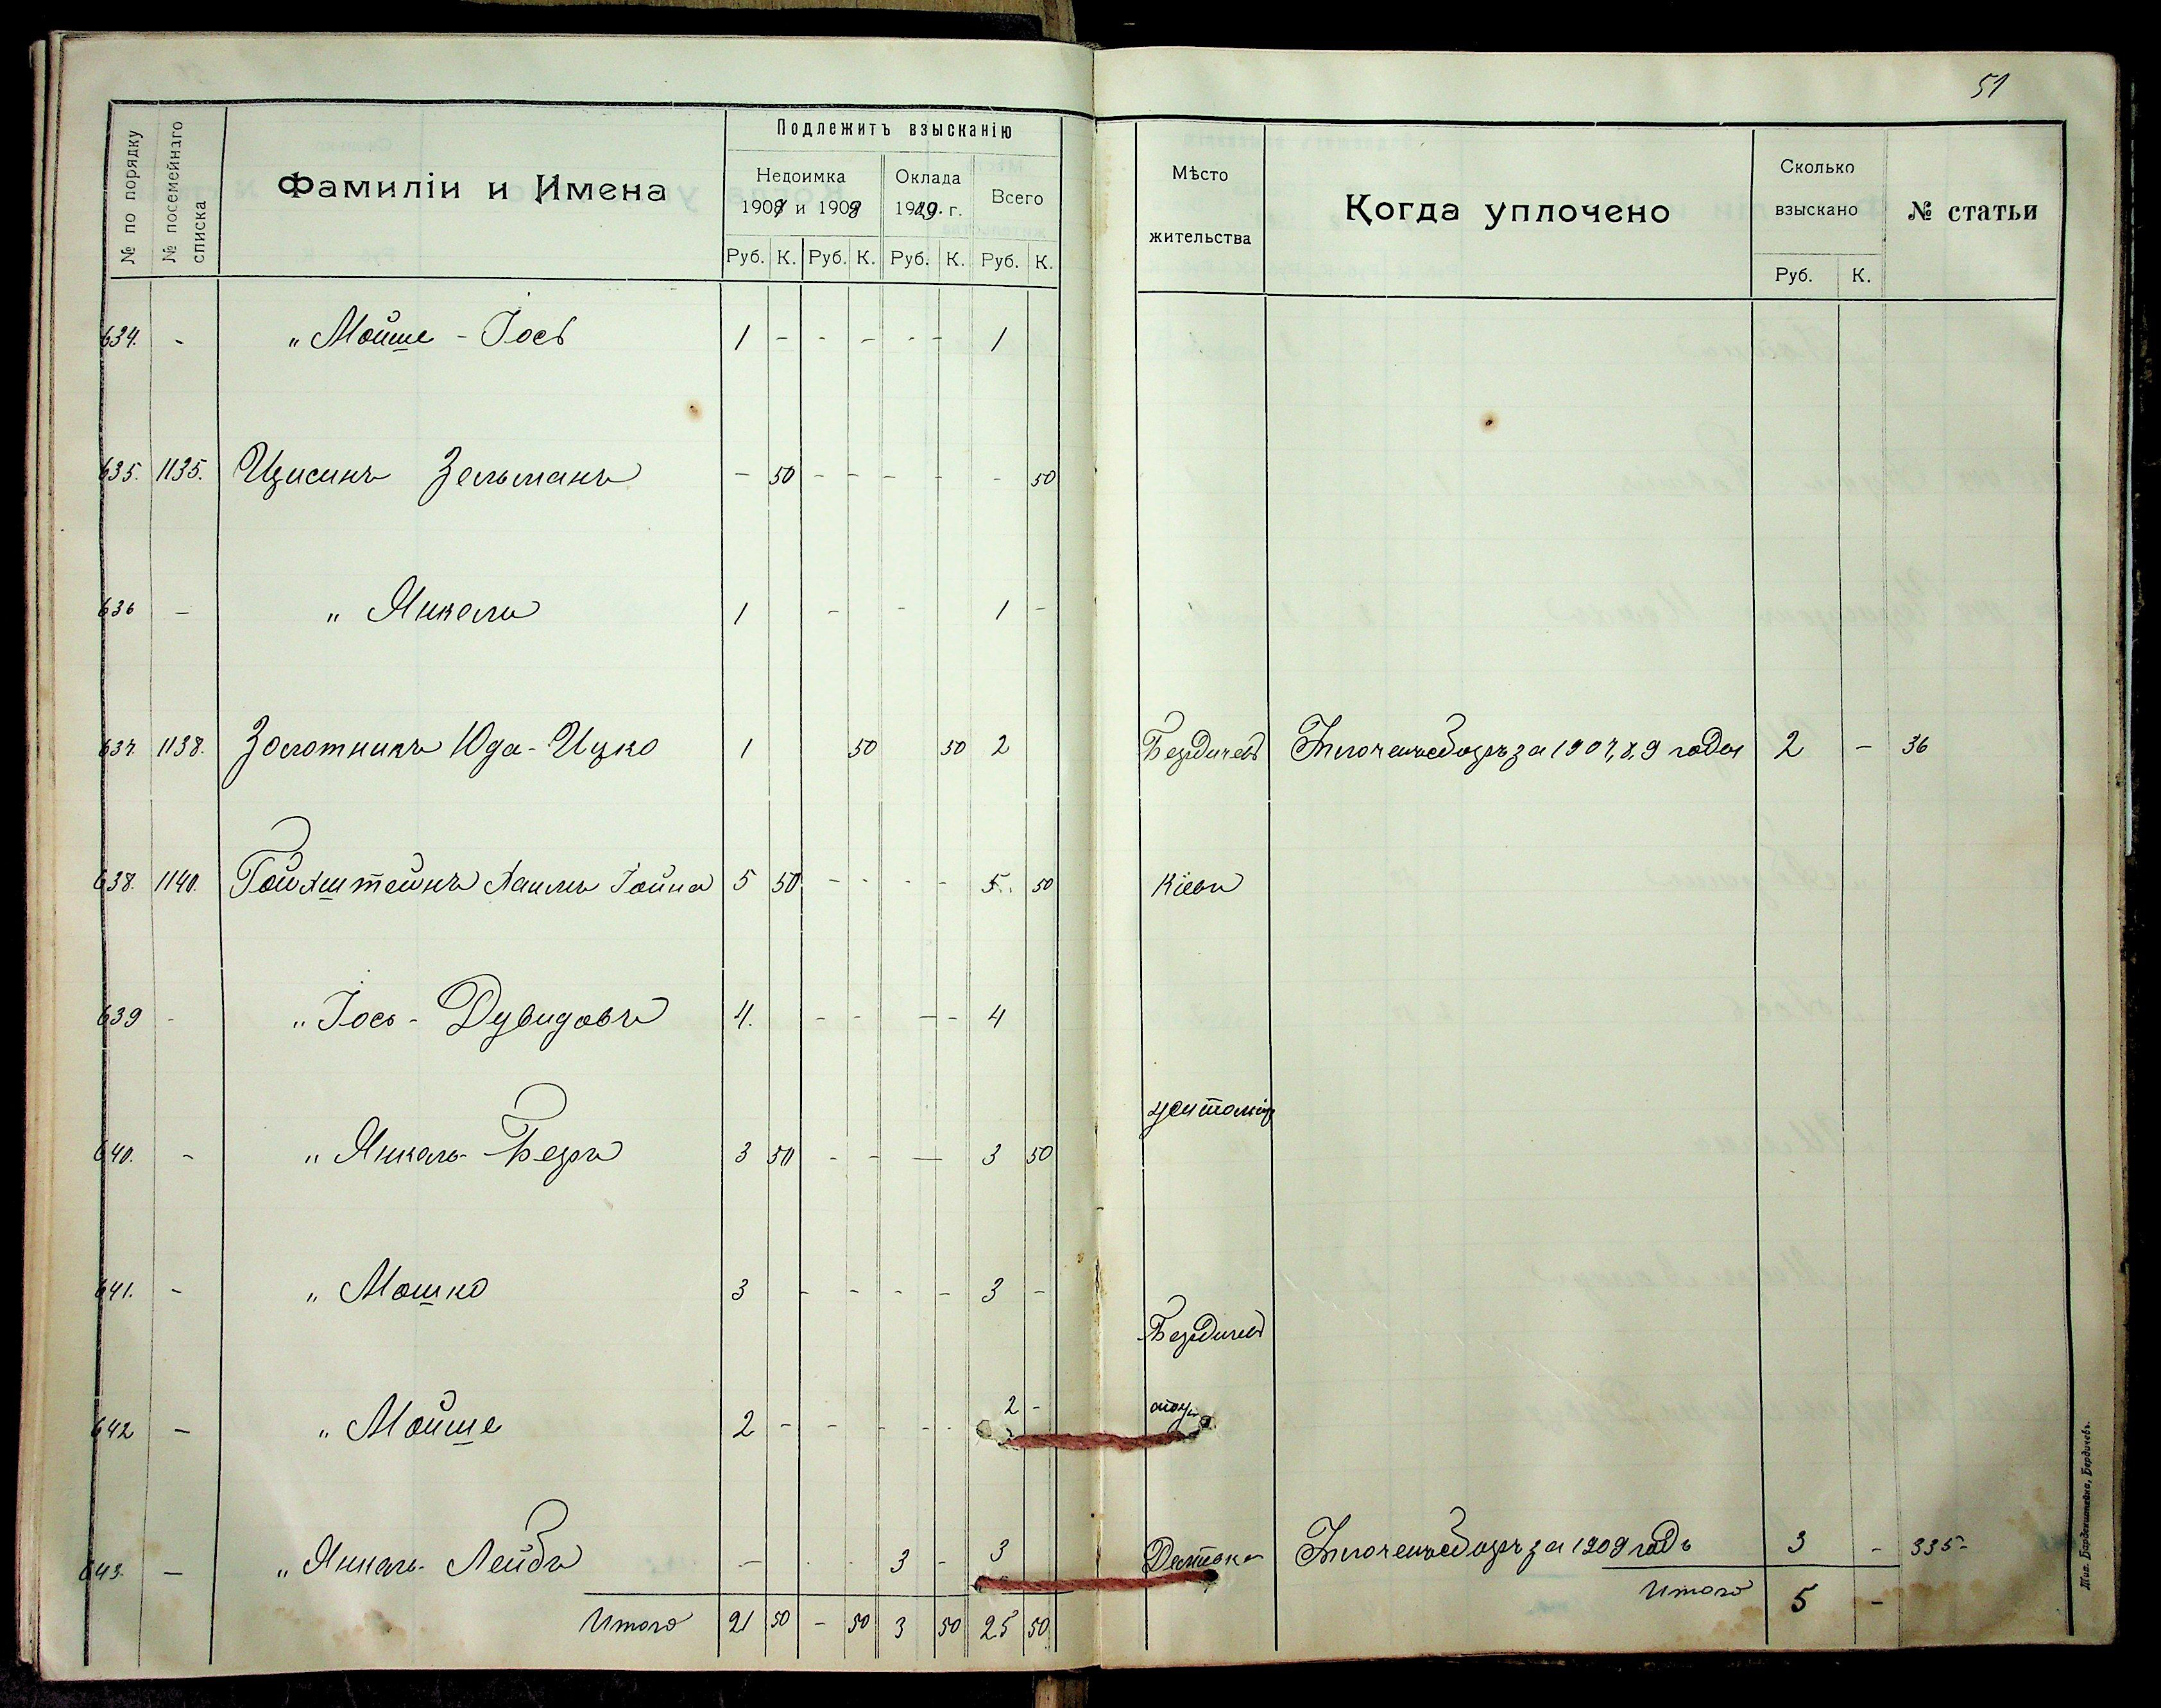 51
№ по порядку
№ посемейнаго списка
Фамиліи и Имена
Подлежитъ взысканію
Недоимка
1907 и 1908
Оклада
1909 г.
Всего
Руб. К. Руб. К. Руб. К. Руб. К.
Мѣсто
жительства
Когда уплочено
Сколько
взыскано
Руб. К.
№ статьи
634. - " Мойше - Іось 1 - - - - - 1
635. 1135. Цисинъ Зельманъ - 50 - - - - - 50
636 - " Янкель 1 - - 1 -
637. 1138. Золотникъ Юда - Ицко 1 50 50 2 Бердичевъ за 1907, 8, 9 года 2 - 36
638. 1140. Гойхштейнъ Хаимъ Іойна 5 50 - - - - 5. 50 Кіевъ
639 - " Іось - Дувидовъ 4. - - - - 4
640. - " Янкель - Беръ 3 50 - - — 3 50 Житомір
641. - " Мошко 3 - - - - 3 - Бердичевъ
642 - " Мойше 2 - - - - - 2 -
643. - " Янкель - Лейбъ - - - 3 - 3 за 1909 годъ 3 - 335-
Итого 21 50 - 50 3 50 25 50
Итого 5 -
Тип. Барденштейна, Бердичевъ.